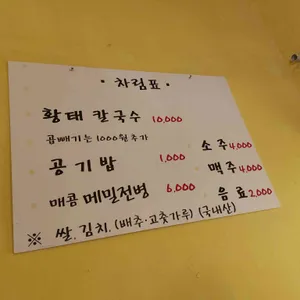 · 차림표 ·
황태 칼국수 10,000
곱빼기는 1000원추가
공기밥 1,000
매콤메밀전병 6,000
소주 4,000
맥주 4,000
음료 2,000
※ 쌀, 김치, (배추·고춧가루) (국내산)